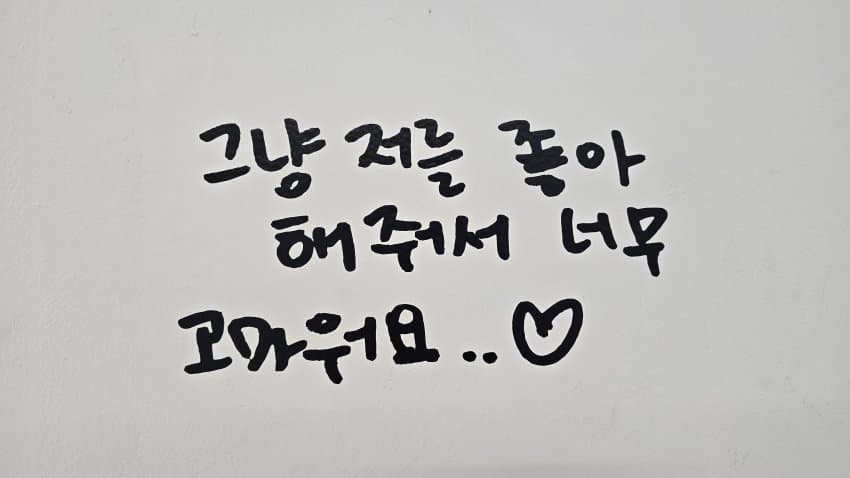 그냥 저를 좋아
해줘서 너무
고마워요..♡